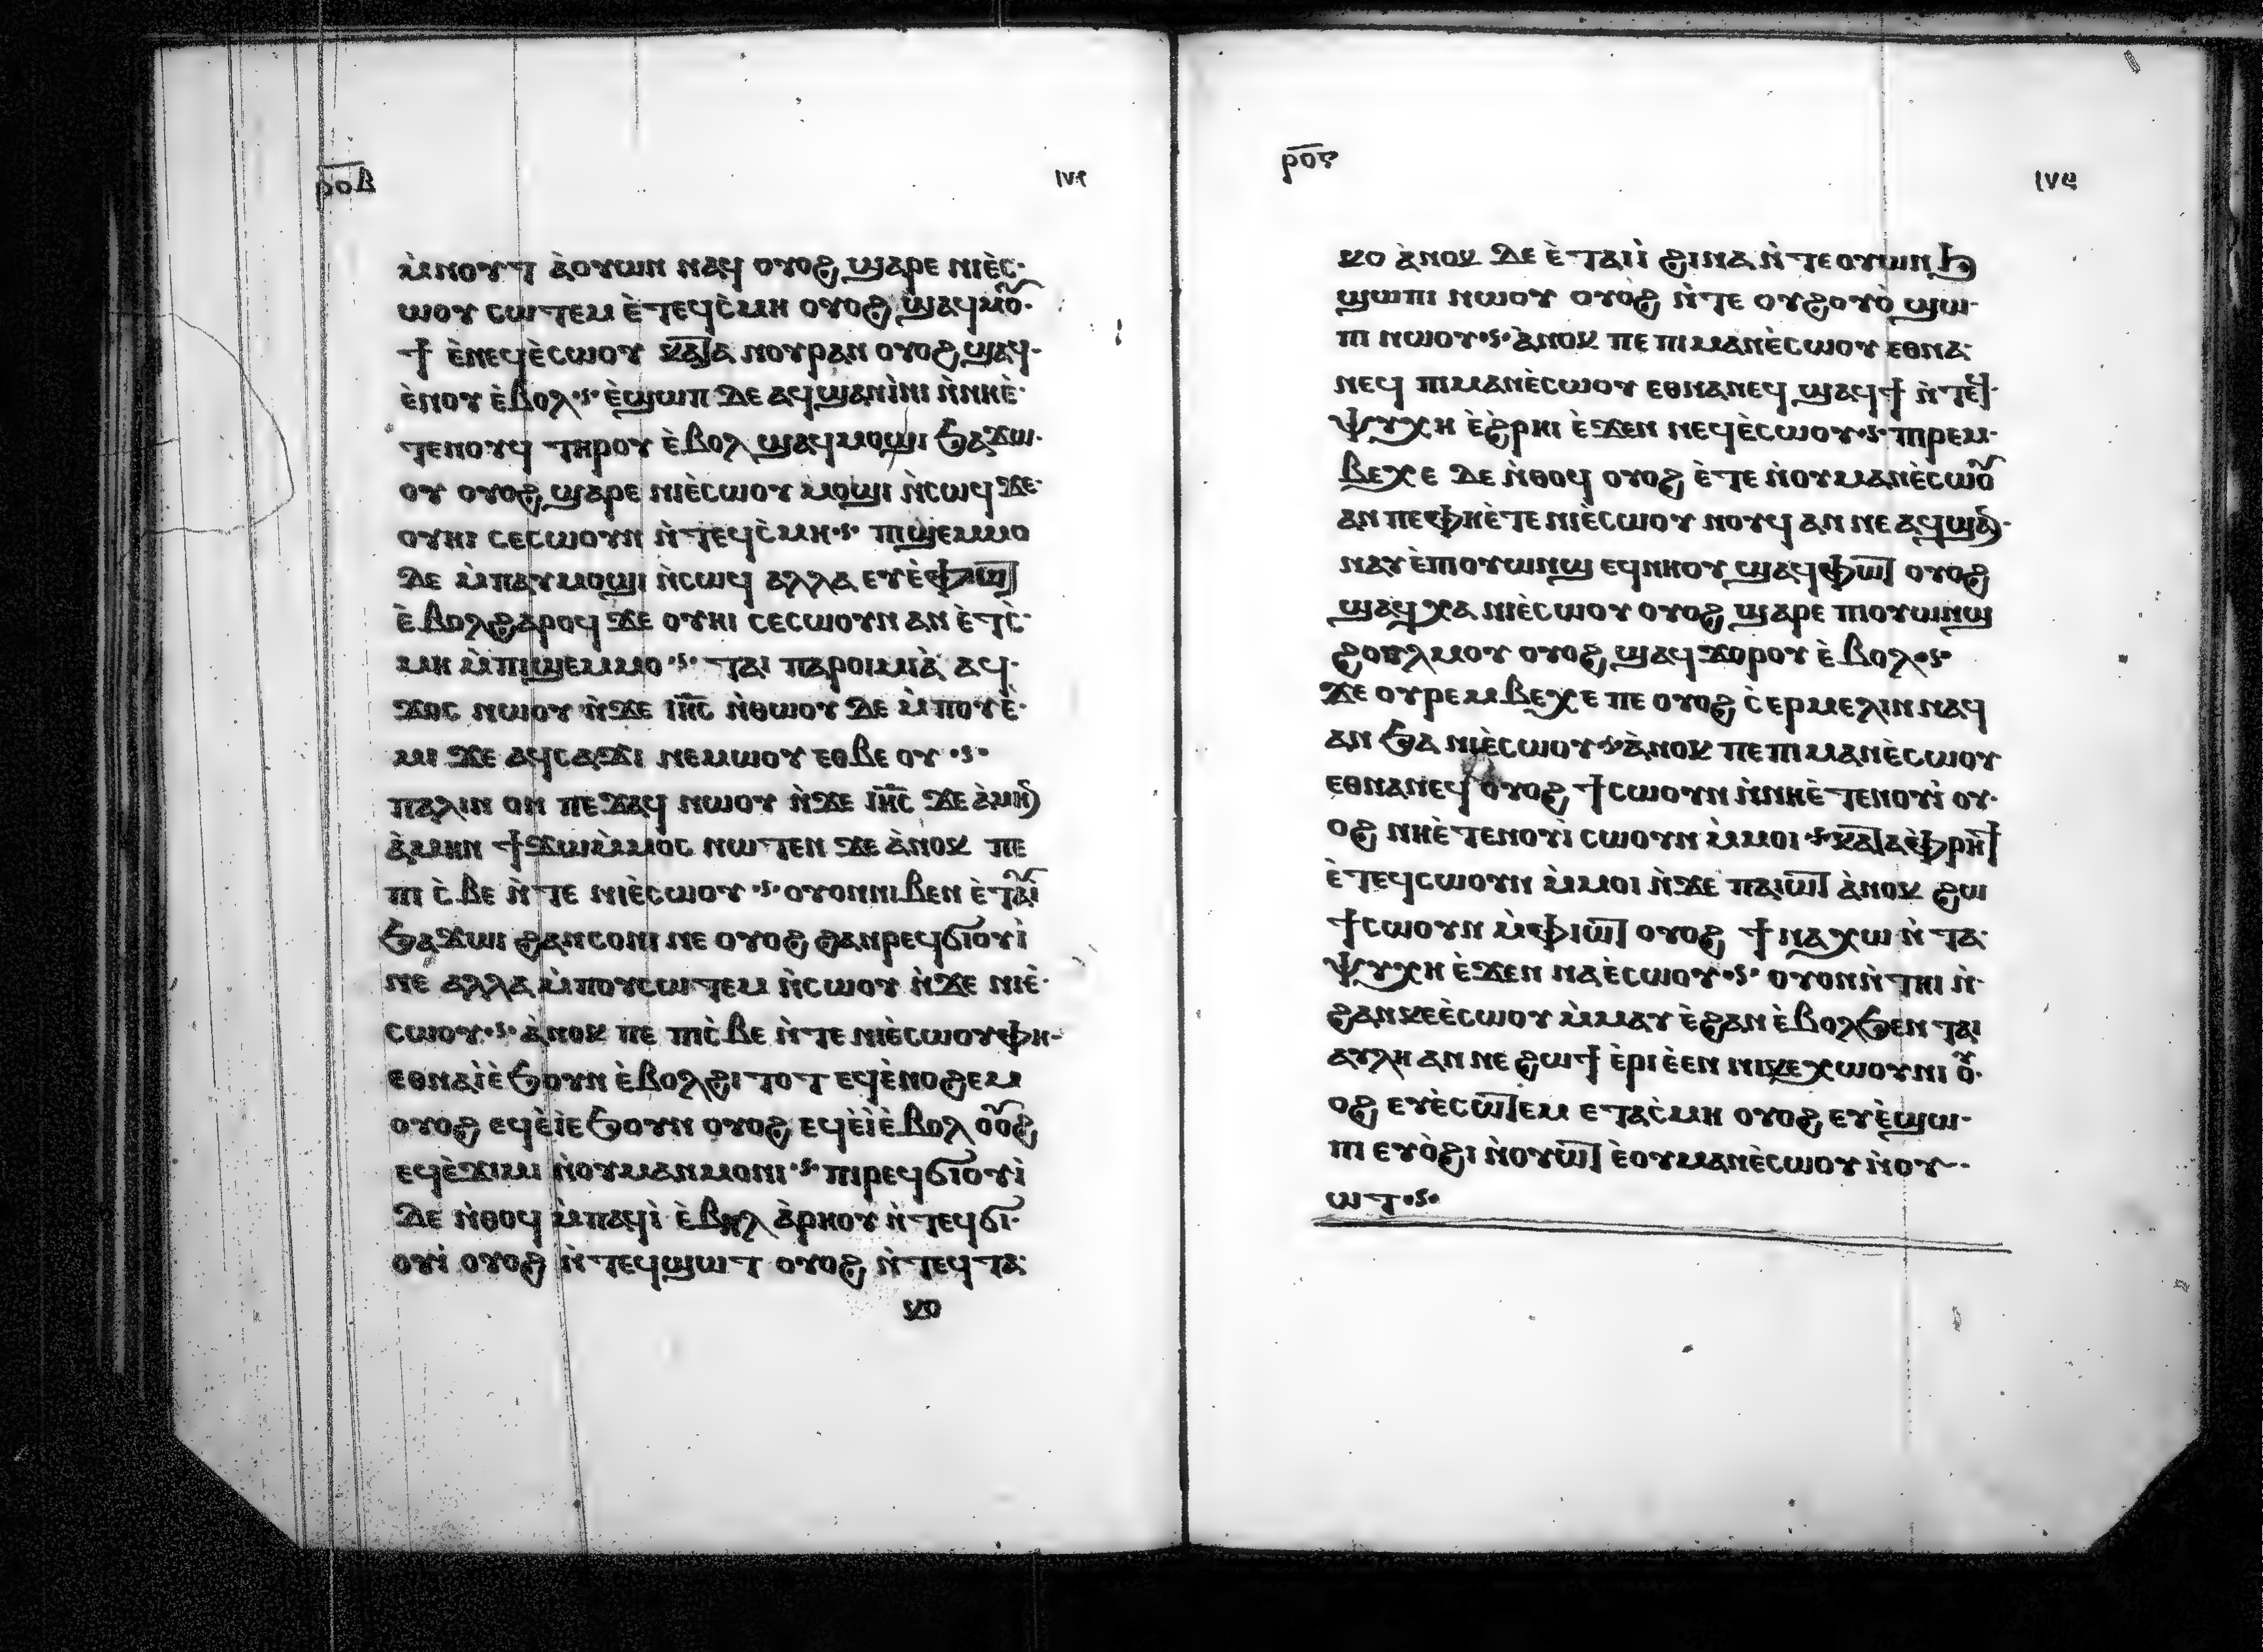 ⲣⲟⲇ ١٧٤
ⲙ̀ⲛⲟⲩⲧ ⲁ̀ⲟⲩⲱⲛ ⲛⲁϥ ⲟⲩⲟϩ ϣⲁⲣⲉ ⲛⲓⲉ̀ⲥ·
ⲱⲟⲩ ⲥⲱⲧⲉⲙ ⲉ̀ⲧⲉϥⲥ̀ⲙⲏ ⲟⲩⲟϩ ϣⲁϥⲙⲟ̀ⲩ·
ϯ ⲉ̀ⲛⲉϥⲉ̀ⲥⲱⲟⲩ ⲕⲁⲧⲁ ⲛⲟⲩⲣⲁⲛ ⲟⲩⲟϩ ϣⲁϥ·
ⲉ̀ⲛⲟⲩ ⲉ̀ⲃⲟⲗ·ⲋ· ⲉ̀ϣⲱⲡ ⲇⲉ ⲁϥϣⲁⲛⲓ̀ⲛⲓ ⲛ̀ⲛⲏⲉ̀·
ⲧⲉⲛⲟⲩϥ ⲧⲏⲣⲟⲩ ⲉ̀ⲃⲟⲗ ϣⲁϥⲙⲟϣⲓ ϧⲁϫⲱ·
ⲟⲩ ⲟⲩⲟϩ ϣⲁⲣⲉ ⲛⲓⲉ̀ⲥⲱⲟⲩ ⲙⲟϣⲓ ⲛ̀ⲥⲱϥ ϫⲉ·
ⲟⲩⲏⲓ ⲥⲉⲥⲱⲟⲩⲛ ⲛ̀ⲧⲉϥⲥ̀ⲙⲏ·ⲋ· ⲡⲓϣⲉⲙⲙⲟ
ⲇⲉ ⲙ̀ⲡⲁⲩⲙⲟϣⲓ ⲛ̀ⲥⲱϥ ⲁⲗⲗⲁ ⲉⲩⲉ̀ⲫⲱⲧ
ⲉ̀ⲃⲟⲗϩⲁⲣⲟϥ ϫⲉ ⲟⲩⲏⲓ ⲥⲉⲥⲱⲟⲩⲛ ⲁⲛ ⲉ̀ⲧⲥ̀·
ⲙⲏ ⲙ̀ⲡⲓϣⲉⲙⲙⲟ·ⲋ· ⲧⲁⲓ ⲡⲁⲣⲟⲓⲙⲓⲁ̀ ⲁϥ·
ϫⲟⲥ ⲛⲱⲟⲩ ⲛ̀ϫⲉ ⲓⲏ̅ⲥ̅ ⲛ̀ⲑⲱⲟⲩ ⲇⲉ ⲙ̀ⲡⲟⲩⲉ̀·
ⲙⲓ ϫⲉ ⲁϥⲥⲁϫⲓ ⲛⲉⲙⲱⲟⲩ ⲉⲑⲃⲉ ⲟⲩ·ⲋ·
ⲡⲁⲗⲓⲛ ⲟⲛ ⲡⲉϫⲁϥ ⲛⲱⲟⲩ ⲛ̀ϫⲉ ⲓⲏ̅ⲥ̅ ϫⲉ ⲁ̀ⲙⲏⲛ
ⲁ̀ⲙⲏⲛ ϯϫⲱⲙ̀ⲙⲟⲥ ⲛⲱⲧⲉⲛ ϫⲉ ⲁ̀ⲛⲟⲕ ⲡⲉ
ⲡⲓ ⲥ̀ⲃⲉ ⲛ̀ⲧⲉ ⲛⲓⲉ̀ⲥⲱⲟⲩ·ⲋ· ⲟⲩⲟⲛⲛⲓⲃⲉⲛ ⲉ̀ⲧⲁⲩⲓ̀
ϧⲁϫⲱⲓ ϩⲁⲛⲥⲟⲛⲓ ⲛⲉ ⲟⲩⲟϩ ϩⲁⲛⲣⲉϥϭⲓⲟⲩⲓ̀
ⲛⲉ ⲁⲗⲗⲁ ⲙ̀ⲡⲟⲩⲥⲱⲧⲉⲙ ⲛ̀ⲥⲱⲟⲩ ⲛ̀ϫⲉ ⲛⲓⲉ̀·
ⲥⲱⲟⲩ·ⲋ· ⲁ̀ⲛⲟⲕ ⲡⲉ ⲡⲓⲥ̀ⲃⲉ ⲛ̀ⲧⲉ ⲛⲓⲉ̀ⲥⲱⲟⲩ ⲫⲏ-
ⲉⲑⲛⲁⲓ̀ⲉ̀ϧⲟⲩⲛ ⲉ̀ⲃⲟⲗϩⲓⲧⲟⲧ ⲉϥⲉ̀ⲛⲟϩⲉⲙ
ⲟⲩⲟϩ ⲉϥⲉ̀ⲓ̀ⲉϧⲟⲩⲛ ⲟⲩⲟϩ ⲉϥⲉ̀ⲓ̀ⲉ̀ⲃⲟⲗ ⲟⲩⲟϩ
ⲉϥⲉ̀ϫⲓⲙⲓ ⲛ̀ⲟⲩⲙⲁⲛⲙⲟⲛⲓ·ⲋ· ⲡⲓⲣⲉϥϭⲓⲟⲩⲓ̀
ⲇⲉ ⲛ̀ⲑⲟϥ ⲙ̀ⲡⲁϥⲓ̀ ⲉ̀ⲃⲏⲗ ⲁ̀ⲣⲏⲟⲩ ⲛ̀ⲧⲉϥϭⲓ·
ⲟⲩⲓ̀ ⲟⲩⲟϩ ⲛ̀ⲧⲉϥϣⲱⲧ ⲟⲩⲟϩ ⲛ̀ⲧⲉϥⲧⲁ·
ⲕⲟ
ⲣⲟ̅ⲋ ١٧٥
ⲕⲟ ⲁ̀ⲛⲟⲕ ⲇⲉ ⲉ̀ⲧⲁⲓⲓ̀ ϩⲓⲛⲁ ⲛ̀ⲧⲉⲟⲩⲱⲛϧ
ϣⲱⲡⲓ ⲛⲱⲟⲩ ⲟⲩⲟϩ ⲛ̀ⲧⲉ ⲟⲩϩⲟⲩⲟ̀ ϣⲱ·
ⲡⲓ ⲛⲱⲟⲩ·ⲋ· ⲁ̀ⲛⲟⲕ ⲡⲉ ⲡⲓⲙⲁⲛⲉ̀ⲥⲱⲟⲩ ⲉⲑⲛⲁ·
ⲛⲉϥ ⲡⲓⲙⲁⲛⲉ̀ⲥⲱⲟⲩ ⲉⲑⲛⲁⲛⲉϥ ϣⲁϥϯ ⲛ̀ⲧⲉϥ·
ⲯⲩⲭⲏ ⲉ̀ϩ̀ⲣⲏⲓ ⲉ̀ϫⲉⲛ ⲛⲉϥⲉ̀ⲥⲱⲟⲩ·ⲋ· ⲡⲓⲣⲉⲙ·
ⲃⲉⲭⲉ ⲇⲉ ⲛ̀ⲑⲟϥ ⲟⲩⲟϩ ⲉ̀ⲧⲉ ⲛ̀ⲟⲩⲙⲁⲛⲉ̀ⲥⲱⲟⲩ
ⲁⲛ ⲡⲉ ⲫⲏⲉ̀ⲧⲉ ⲛⲓⲉ̀ⲥⲱⲟⲩ ⲛⲟⲩϥ ⲁⲛ ⲛⲉ ⲁϥϣⲁⲛ·
ⲛⲁⲩ ⲉ̀ⲡⲓⲟⲩⲱⲛϣ ⲉϥⲛⲏⲟⲩ ϣⲁϥⲫⲱⲧ ⲟⲩⲟϩ
ϣⲁϥⲭⲁ ⲛⲓⲉ̀ⲥⲱⲟⲩ ⲟⲩⲟϩ ϣⲁⲣⲉ ⲡⲓⲟⲩⲱⲛϣ
ϩⲟⲗⲙⲟⲩ ⲟⲩⲟϩ ϣⲁϥ ϫⲟⲣⲟⲩ ⲉ̀ⲃⲟⲗ·ⲋ·
ϫⲉ ⲟⲩⲣⲉⲙⲃⲉⲭⲉ ⲡⲉ ⲟⲩⲟϩ ⲥ̀ⲉⲣⲙⲉⲗⲓⲛ ⲛⲁϥ
ⲁⲛ ϧⲁ ⲛⲓⲉ̀ⲥⲱⲟⲩ·ⲋ· ⲁ̀ⲛⲟⲕ ⲡⲉ ⲡⲓⲙⲁⲛⲉ̀ⲥⲱⲟⲩ
ⲉⲑⲛⲁⲛⲉϥ ⲟⲩⲟϩ ϯⲥⲱⲟⲩⲛ ⲛ̀ⲛⲏⲉ̀ⲧⲉⲛⲟⲩⲓ̀ ⲟⲩ·
ⲟϩ ⲛⲏⲉ̀ⲧⲉⲛⲟⲩⲓ̀ ⲥⲱⲟⲩⲛ ⲙ̀ⲙⲟⲓ·ⲋ· ⲕⲁⲧⲁⲫ̀ⲣⲏϯ
ⲉ̀ⲧⲉϥⲥⲱⲟⲩⲛ ⲙ̀ⲙⲟⲓ ⲛ̀ϫⲉ ⲡⲁⲓⲱⲧ ⲁ̀ⲛⲟⲕ ϩⲱ
ϯⲥⲱⲟⲩⲛ ⲙ̀ⲫⲓⲱⲧ ⲟⲩⲟϩ ϯⲛⲁⲭⲱ ⲛ̀ⲧⲁ·
ⲯⲩⲭⲏ ⲉ̀ϫⲉⲛ ⲛⲁⲉ̀ⲥⲱⲟⲩ·ⲋ· ⲟⲩⲟⲛⲛ̀ⲧⲏⲓ ⲛ̀·
ϩⲁⲛⲕⲉⲉ̀ⲥⲱⲟⲩ ⲙ̀ⲙⲁⲩ ⲉ̀ϩⲁⲛ ⲉ̀ⲃⲟⲗϧⲉⲛ ⲧⲁⲓ
ⲁⲩⲗⲏ ⲁⲛ ⲛⲉ ϩⲱϯ ⲉ̀ⲣⲓ ⲉ̀ⲉⲛ ⲛⲓⲕⲉⲭⲱⲟⲩⲛⲓ ⲟ̀ⲩ·
ⲟϩ ⲉⲩⲉ̀ⲥⲱⲧⲉⲙ ⲉⲧⲁⲥ̀ⲙⲏ ⲟⲩⲟϩ ⲉⲩⲉ̀ϣⲱ·
ⲡⲓ ⲉⲩⲟ̀ϩⲓ ⲛ̀ⲟⲩⲱⲧ ⲉⲟⲩⲙⲁⲛⲉ̀ⲥⲱⲟⲩ ⲛ̀ⲟⲩ··
ⲱⲧ·ⲋ·